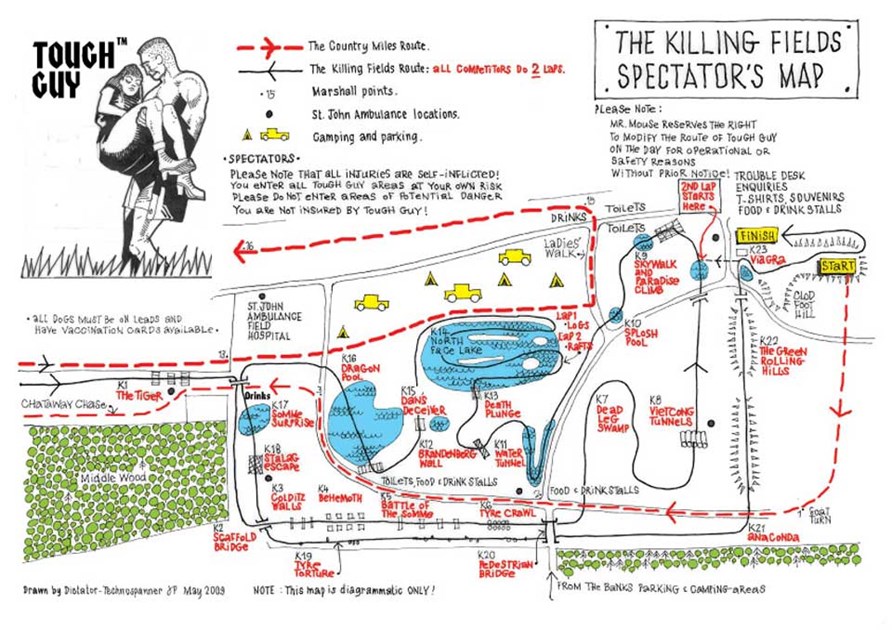 TOUGH™
GUY
The Country Miles Route.
The Killing Fields Route: ALL COMPETITORS DO 2 LAPS.
·15 Marshall points.
St. John Ambulance locations.
Camping and parking.
THE KILLING FIELDS
SPECTATOR'S MAP
PLEASE NOTE:
MR. MOUSE RESERVES THE RIGHT
TO MODIFY THE ROUTE OF TOUGH GUY
ON THE DAY FOR OPERATIONAL OR
SAFETY REASONS
WITHOUT PRIOR NOTICE!
·SPECTATORS·
PLEASE NOTE THAT ALL INJURIES ARE SELF-INFLICTED!
YOU ENTER ALL TOUGH GUY AREAS AT YOUR OWN RISK
PLEASE DO NOT ENTER AREAS OF POTENTIAL DANGER
YOU ARE NOT INSURED BY TOUGH GUY!
TROUBLE DESK
ENQUIRIES
T.SHIRTS, SOUVENIRS
FOOD & DRINK STALLS
2ND LAP
STARTS
HERE
TOILETS
TOILETS
DRINKS
LADIES'
WALK
FINISH
START
K23
VIAGRA
K9
SKYWALK
AND
PARADISE
CLIMB
CLOD
FOOT
HILL
K10
SPLOSH
POOL
LAP 1
·LOGS
LAP 2
·RAFTS
K22
THE GREEN
ROLLING
HILLS
·ALL DOGS MUST BE ON LEADS AND
HAVE VACCINATION CARDS AVAILABLE·
ST. JOHN
AMBULANCE
FIELD
HOSPITAL
K14
NORTH
FACE LAKE
K16
DRAGON
POOL
K15
DANS
DECEIVER
K13
DEATH
PLUNGE
K12
BRANDENBERG
WALL
K11
WATER
TUNNEL
K7
DEAD
LEG
SWAMP
K8
VIETCONG
TUNNELS
K1
THE TIGER
CHATAWAY CHASE
Drinks
K17
SOMME
SURPRISE
K18
STALAG
ESCAPE
K3
COLDITZ
WALLS
K4
BEHEMOTH
TOILETS, FOOD & DRINK STALLS
K5
BATTLE OF
THE SOMME
K6
TYRE CRAWL
FOOD & DRINK STALLS
Middle Wood
K2
SCAFFOLD
BRIDGE
K19
TYRE
TORTURE
K20
PEDESTRIAN
BRIDGE
GOAT
TURN
K21
ANACONDA
FROM THE BANKS PARKING & CAMPING-AREAS
Drawn by Dictator-Technospanner JP May 2009
NOTE: This map is diagrammatic ONLY!